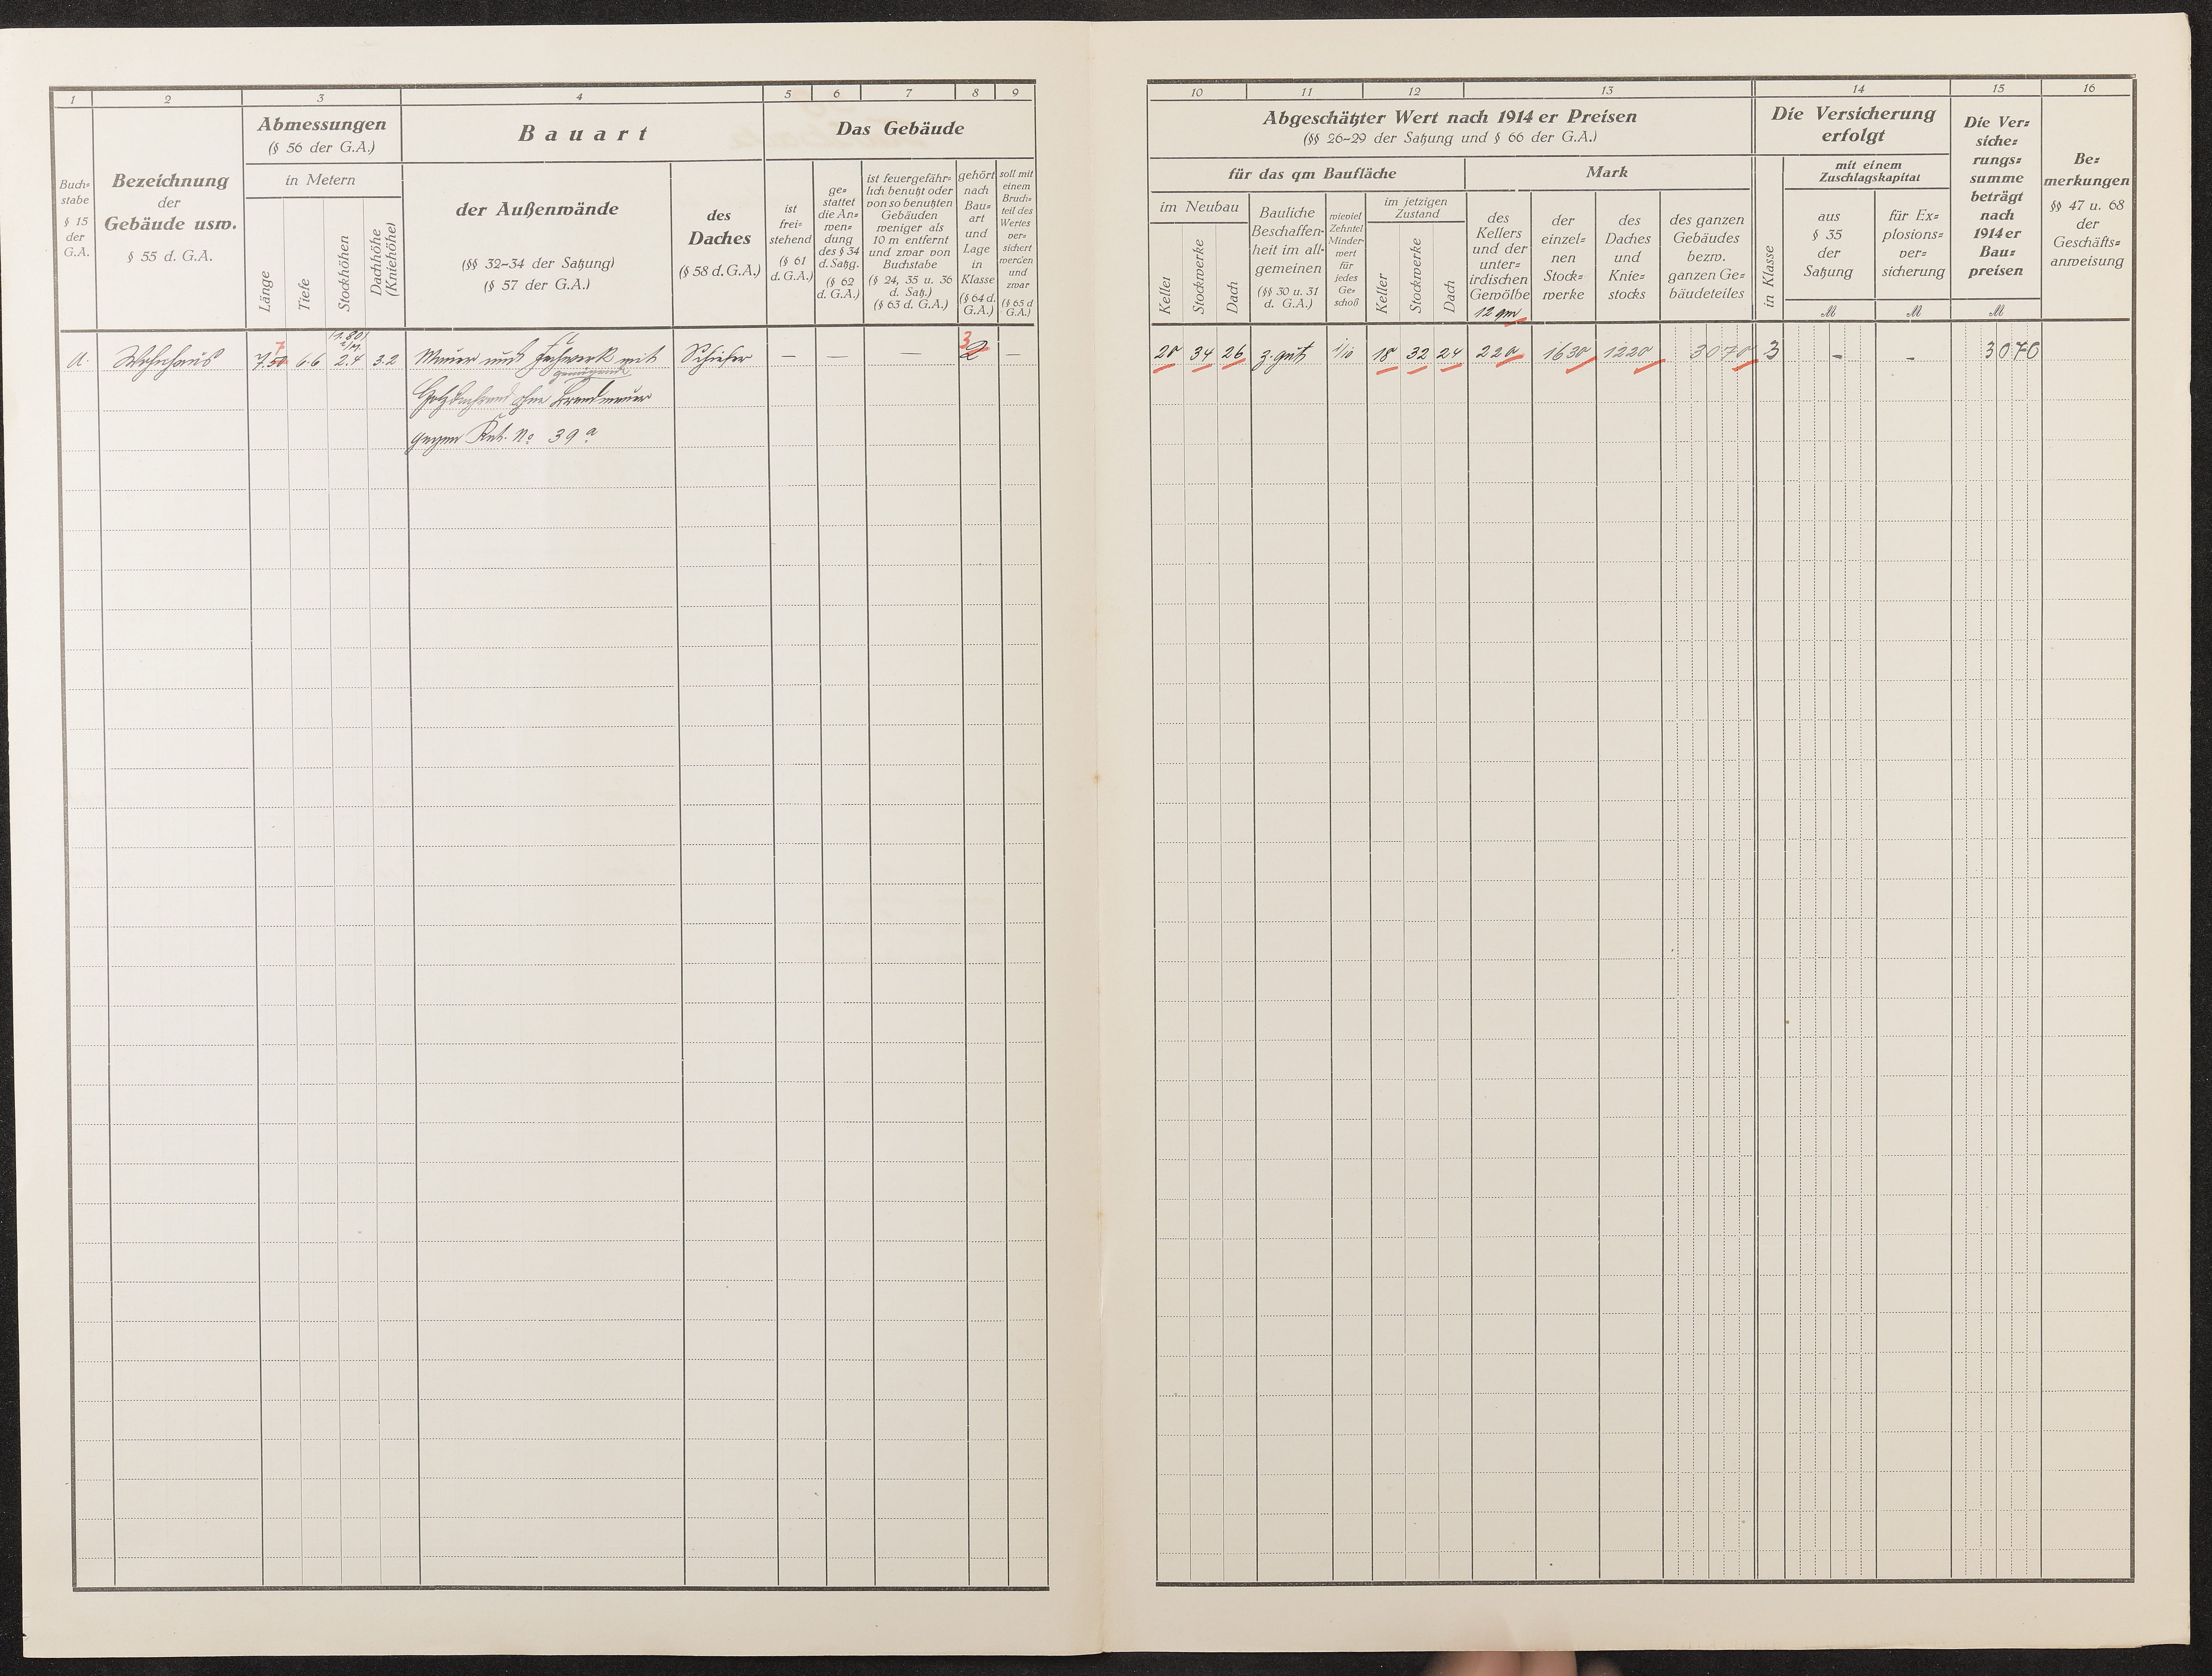 1 2 3 4 5 6 7 8 9
Buch=
stabe
§ 15
der
G.A.
Bezeichnung
der
Gebäude usw.
§ 55 d. G.A.
Abmessungen
(§ 56 der G.A.)
in Metern
Länge
Tiefe
Stockhöhen
Dachhöhe
(Kniehöhe)
Bauart
der Außenwände
(§§ 32-34 der Satzung)
(§ 57 der G.A.)
des
Daches
(§ 58 d. G.A.)
Das Gebäude
ist
frei=
stehend
(§ 61
d. G.A.)
ge=
stattet
die An=
wen=
dung
des § 34
d. Satzg.
(§ 62
d. G.A.)
ist feuergefähr=
lich benutzt oder
von so benutzten
Gebäuden
weniger als
10 m entfernt
und zwar von
Buchstabe
(§ 24, 35 u. 36
d. Satz.)
(§ 63 d. G.A.)
gehört
nach
Bau=
art
und
Lage
in
Klasse
(§ 64 d.
G.A.)
soll mit
einem
Bruch=
teil des
Wertes
ver=
sichert
werden
und
zwar
(§ 65 d
G.A.)
(1.80)
7 3
A. Wohnhaus 7.50 6.6 2.4 3.2 Mauer und Fachwerk mit Schiefer — — — 2 —
genügend
ohne Brandmauer
gegen Kat. No 39 a
10 11 12 13 14 15 16
Abgeschätzter Wert nach 1914 er Preisen
(§§ 26-29 der Satzung und § 66 der G.A.)
für das qm Baufläche
im Neubau
Keller
Stockwerke
Dach
Bauliche
Beschaffen=
heit im all=
gemeinen
(§§ 30 u. 31
d. G.A.)
wieviel
Zehntel
Minder=
wert
für
jedes
Ge=
schoß
im jetzigen
Zustand
Keller
Stockwerke
Dach
Mark
des
Kellers
und der
unter=
irdischen
Gewölbe
12 qm
der
einzel=
nen
Stock=
werke
des
Daches
und
Knie=
stocks
des ganzen
Gebäudes
bezw.
ganzen Ge=
bäudeteiles
Die Versicherung
erfolgt
in Klasse
mit einem
Zuschlagskapital
aus
§ 35
der
Satzung
M
für Ex=
plosions=
ver=
sicherung
M
Die Ver=
siche=
rungs=
summe
beträgt
nach
1914 er
Bau=
preisen
M
Be=
merkungen
§§ 47 u. 68
der
Geschäfts=
anweisung
20 34 26 z. gut 1/10 18 32 24 220 1630 1220 3070 3 – – 3070